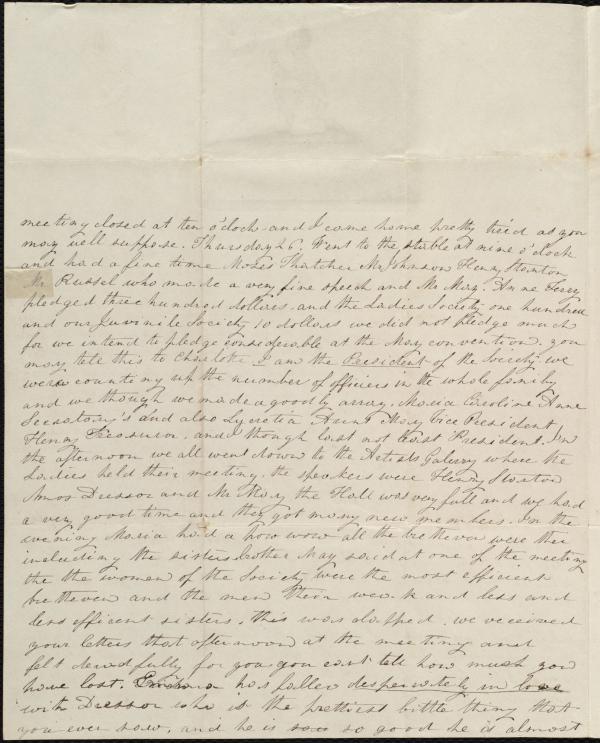 meeting closed at ten o'clock and I came home pretty tired as you
may well suppose. Thursday 26. Went to the stable at nine o'clock
and had a fine time Moses Thatcher Mr Johnson Henry Stanton
Mr Russel who made a very fine speech and Mr May. Anne Terry
pledged three hundred dollars. and the Ladies Society one hundred
and our Juvenile Society 10 dollars we did not pledge much
for we intend to pledge considerable at the May convention. you
may tell this to Charlotte. I am the President of the Society. we
were counting up the number of officers in the whole family
and we though we made a goodly array. Maria Caroline Anne
Secretary's and also Lucretia Aunt Mary Vice President
Henry Treasurer. and though last not least President. In
the afternoon we all went down to the Artists Gallery where the
Ladies held their meeting. the speakers were Henry Stanton
Amos Dresser and Mr May the Hall was very full and we had
a very good time and they got many new members. In the
evening Maria had a pow wow all the bretheren were there
including the sisters. brother May said at one of the meeting
the the women of the Society were the most efficient
bretheren and the men their weak and less and
less efficent sisters. this was clapped. we received
your letters that afternoon at the meeting and
felt dreadfully for you you cant tell how much you
have lost. has fallen desperately in love
with Dresser who is the prettiest little thing that
you ever saw. and he is so good he is almost